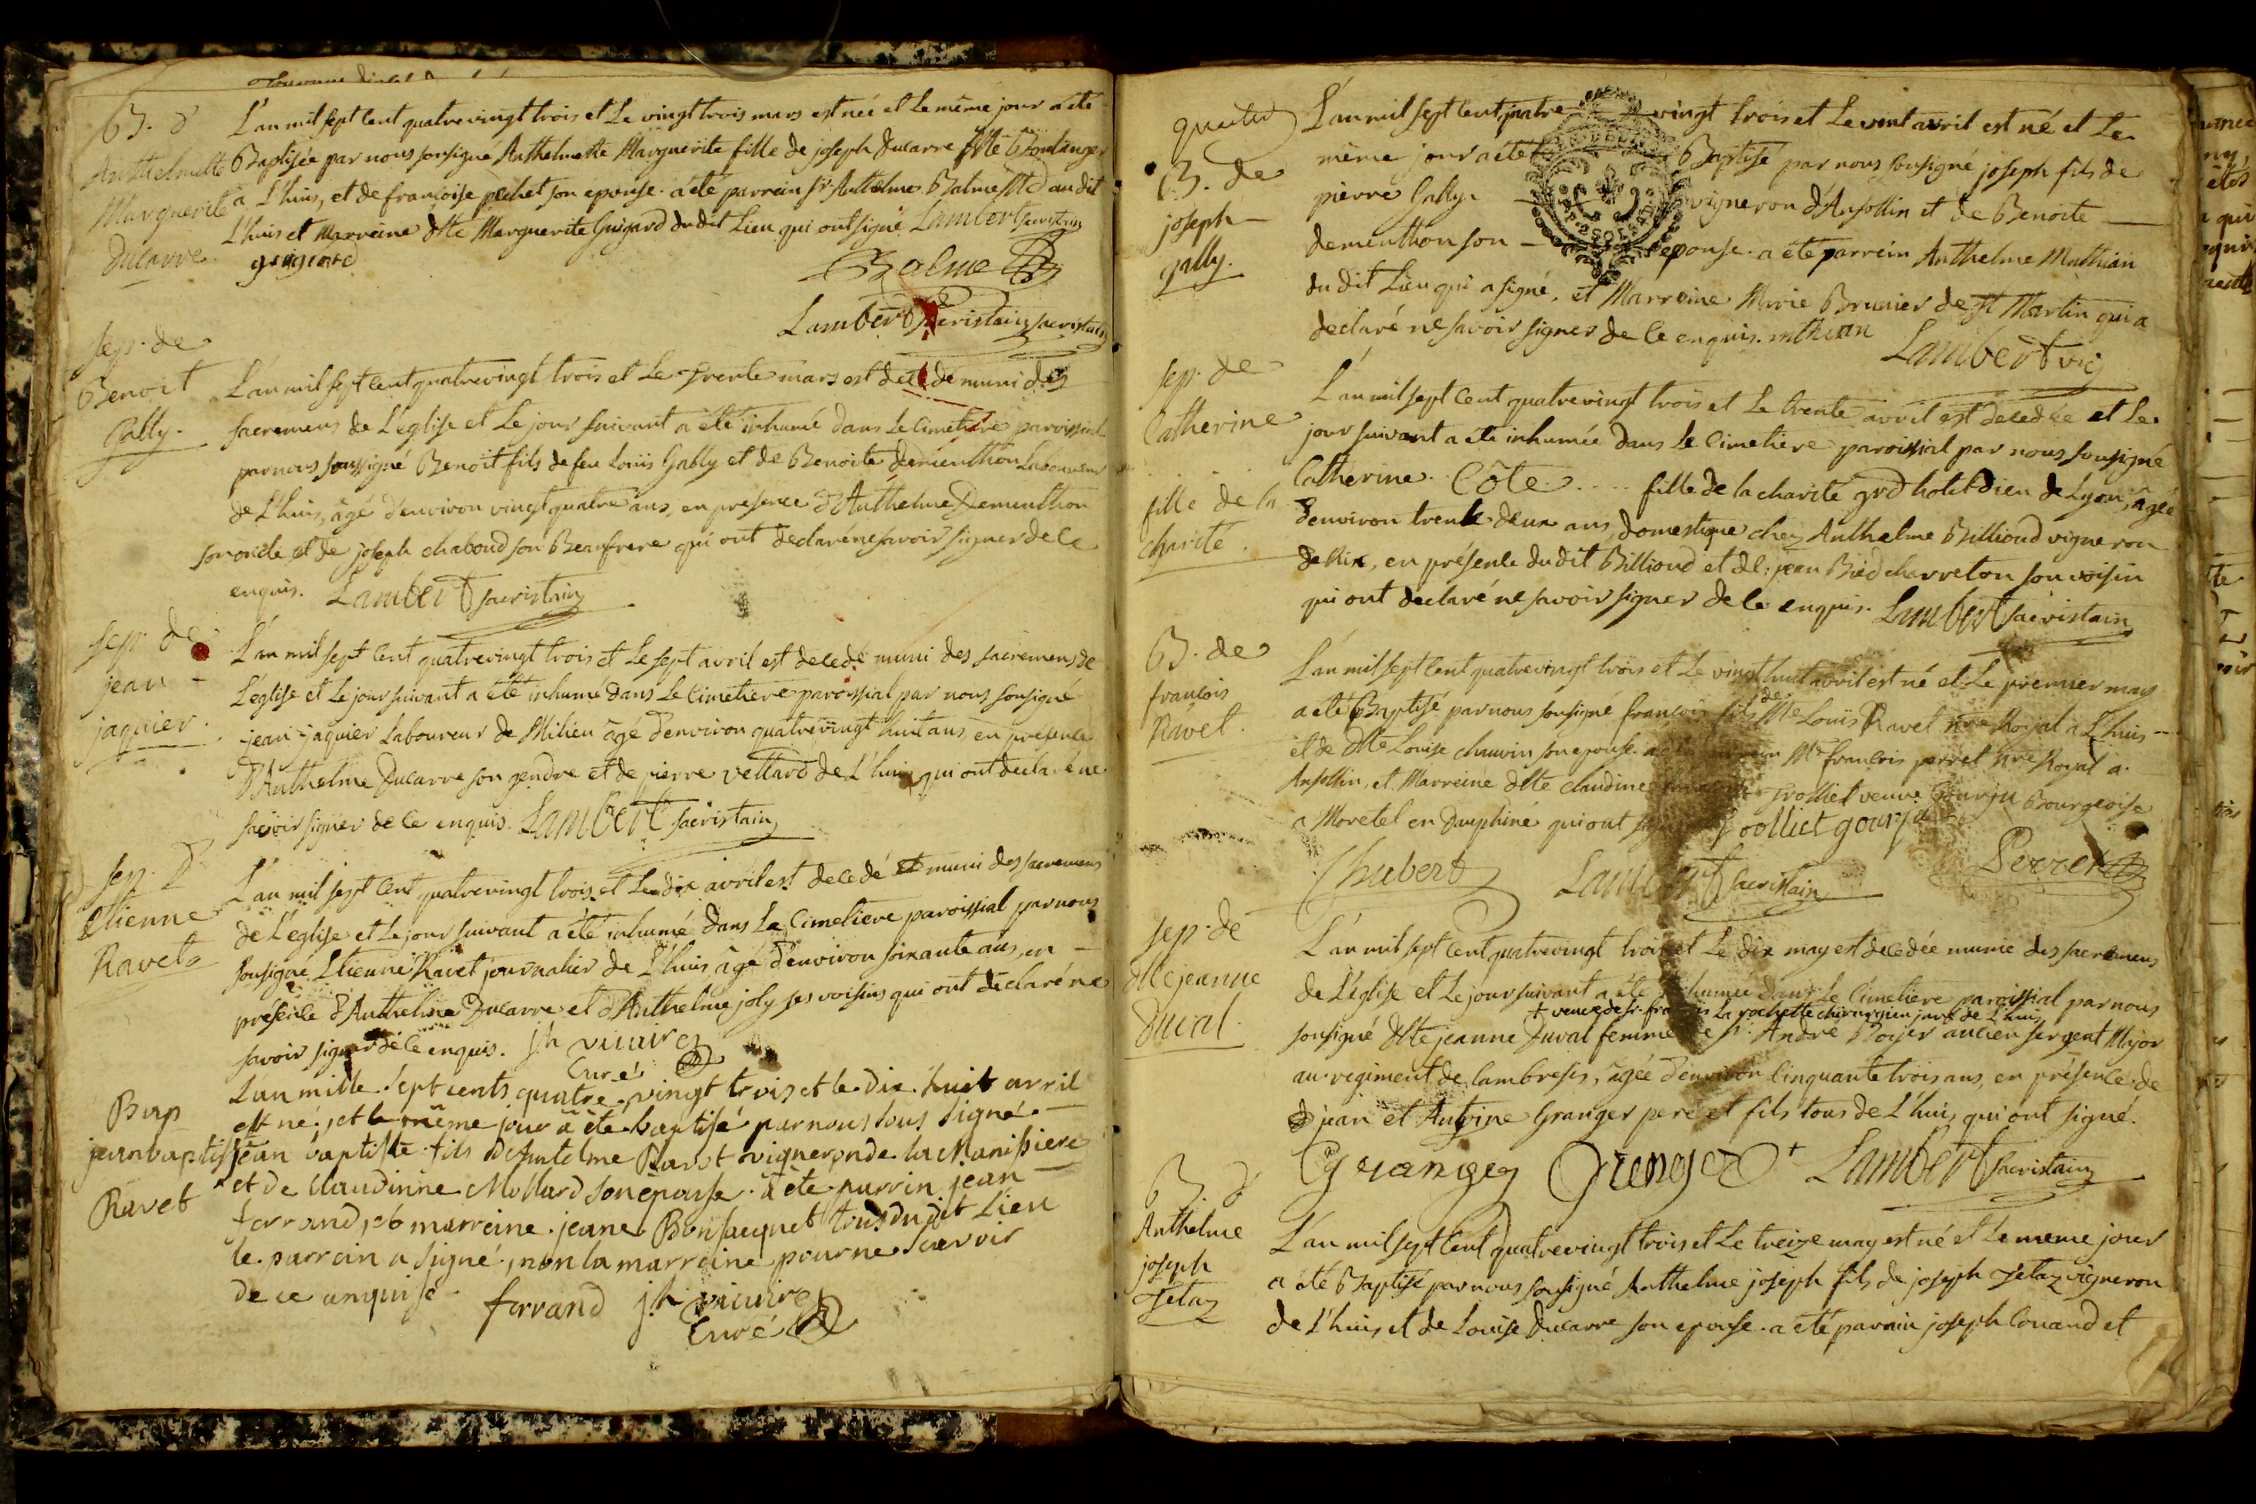 B. d
Anthelmette
Marguerite
Ducarre
L'an mil sept cent quatrevingt trois et Le vingt trois mars est née et Le même jour a été
Baptisée par nous sousigné Anthelmette Marguerite fille de joseph Ducarre Boulanger
a L'huis, et de françoise pechet son epouse. a été parrein Sr Anthelme Balme Md au dit
L'huis et Marreine dlle Marguerite Guigard du dit Lieu qui ont signé Lambert sacristain
guigard
Balme
Lambert sacristain sacristain
sep. de
Benoit
Gally.
L'an mil sept cent quatrevingt trois et Le trente mars est decedé muni des
sacremens de L'église et Le jour suivant a été inhumé dans Le Cimetiere paroissial
par nous soussigné Benoit fils de feu Loüis Gally et de Benoite dementhon Laboureur
de L'huis, âgé d'environ vingt quatre ans, en présence d'Anthelme Dementhon
son oncle et de joseph chaboud son Beaufrere qui ont declaré ne savoir signer de ce
enquis. Lambert sacristain
sep. de
jean
jaquier.
L'an mil sept cent quatrevingt trois et Le sept avril est decedé muni des sacremens de
L'eglise et Le jour suivant a été inhumé dans Le Cimetiere paroissial par nous sousigné
jean jaquier Laboureur de Milieu âgé d'environ quatrevingt huit ans, en présence
d'Anthelme Ducarre son gendre et de pierre vettard de L'huis qui ont déclaré ne
savoir signer de ce enquis. Lambert sacristain
sep. d
Etienne
Ravet
L'an mil sept cent quatrevingt trois et Le dix avril est decedé et muni des sacremens
de L'eglise et Le jour suivant a été inhumé dans Le Cimetiere paroissial par nous
sousigné Etienne Ravet journalier de L'huis âgé d'environ soixante ans, en
présence d'Anthelme Ducarre et d'Anthelme joly ses voisins qui ont declaré ne
savoir signer de ce enquis. jh vicaire
Curé
Bap
jean baptiste
Ravet
L'an mille sept cents quatre vingt trois et le dix huit avril
est né, et le même jour a été baptisé par nous sous signé
jean baptiste fils d'Antelme Ravet vigneron de la Manissiere
et de Claudinne Mollard son épouse. a été parrin jean
ferrand, et marreine jeane Bonjacquet tous du dit Lieu
le parrein a signé, non la marreine pour ne scavoir
de ce enquise. ferrand jh vicaire
Curé
B. de
joseph
gally.
L'an mil sept cent quatre vingt trois et Le vint avril est né et Le
même jour a été Baptisé par nous sousigné joseph fils de
pierre Gally vigneron d'Ansollin et de Benoite
dementhon son epouse. a été parrein Anthelme Mathian
du dit Lieu qui a signé, et Marreine Marie Brunier de St Martin qui a
declaré ne savoir signer de ce enquis. mthian Lambert vic
sep. de
Catherine
fille de la
charité.
L'an mil sept cent quatrevingt trois et Le trente avril est decedée et Le
jour suivant a été inhumée dans Le Cimetiere paroissial par nous sousigné
Catherine. Côte.... fille de la charité grd hotel Dieu de Lyon, âgée
d'environ trente deux ans, domestique chez Anthelme Billioud vigneron
de Rix, en présence du dit Billioud et de jean Bied charreton son voisin
qui ont declaré ne savoir signer de ce enquis. Lambert sacristain
B. de
francois
Ravet.
L'an mil sept cent quatrevingt trois et Le vingt huit avril est né et Le premier may
a été Baptisé par nous sousigné francois fils de Me Loüis Ravet nre Royal a L'huis
et de dlle Louise chauvin son epouse. Mr françois perret nre Royal a
Ansollin, et Marreine dlle claudine trolliet veuve Gourju Bourgeoise
a Moretel en Dauphiné qui ont trolliet gourju
Chubert Lambert sacristain Perret
sep. de
dlle jeanne
Duval.
L'an mil sept cent quatrevingt trois et Le dix may est decedée munie des sacremens
de L'église et Le jour suivant a été inhumée dans Le Cimetiere paroissial par nous
+ veuve de sr. françois La rochette chirurgien juré de L'huis
sousigné dlle jeanne Duval femme de sr. André Boyer ancien sergent Major
au regiment de Cambresis, âgée d'environ Cinquante trois ans, en présence de
jean et Antoine Granger pere et fils tous de L'huis qui ont signé.
Granger Grenger + Lambert sacristain
B. d
Anthelme
joseph
Jetaz
L'an mil sept cent quatrevingt trois et Le treize may est né et Le meme jour
a été Baptisé par nous sousigné Anthelme joseph fils de joseph Jetaz vigneron
de L'huis, et de Louise Ducarre son epouse. a été parrain joseph Couand et